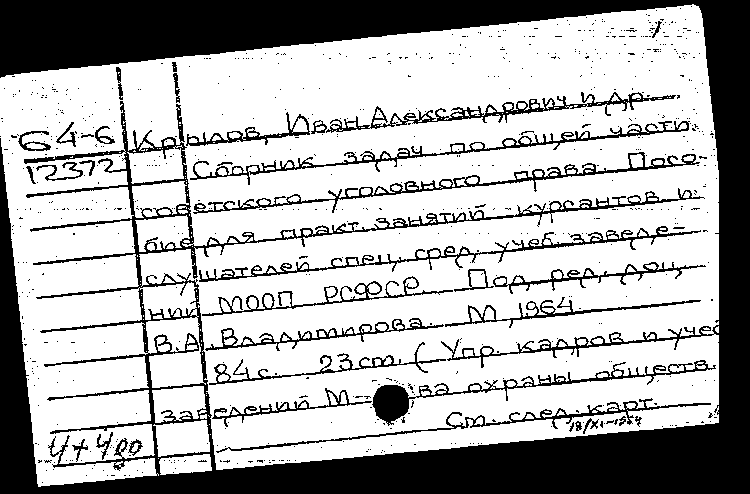 1
64-6 Крылов, Иван Александрович и др.
12372 Сборник задач по общей части
советского уголовного права. Посо-
бие для практ. занятий курсантов и
слушателей спец. сред. учеб. заведе-
ний МООП РСФСР. Под ред. доц.
В.А. Владимирова. М., 1964
84 с. 23 см. (Упр. кадров и учеб
заведений М-ва охраны обществ.
См. след. карт.
4+4
18/XI-1964